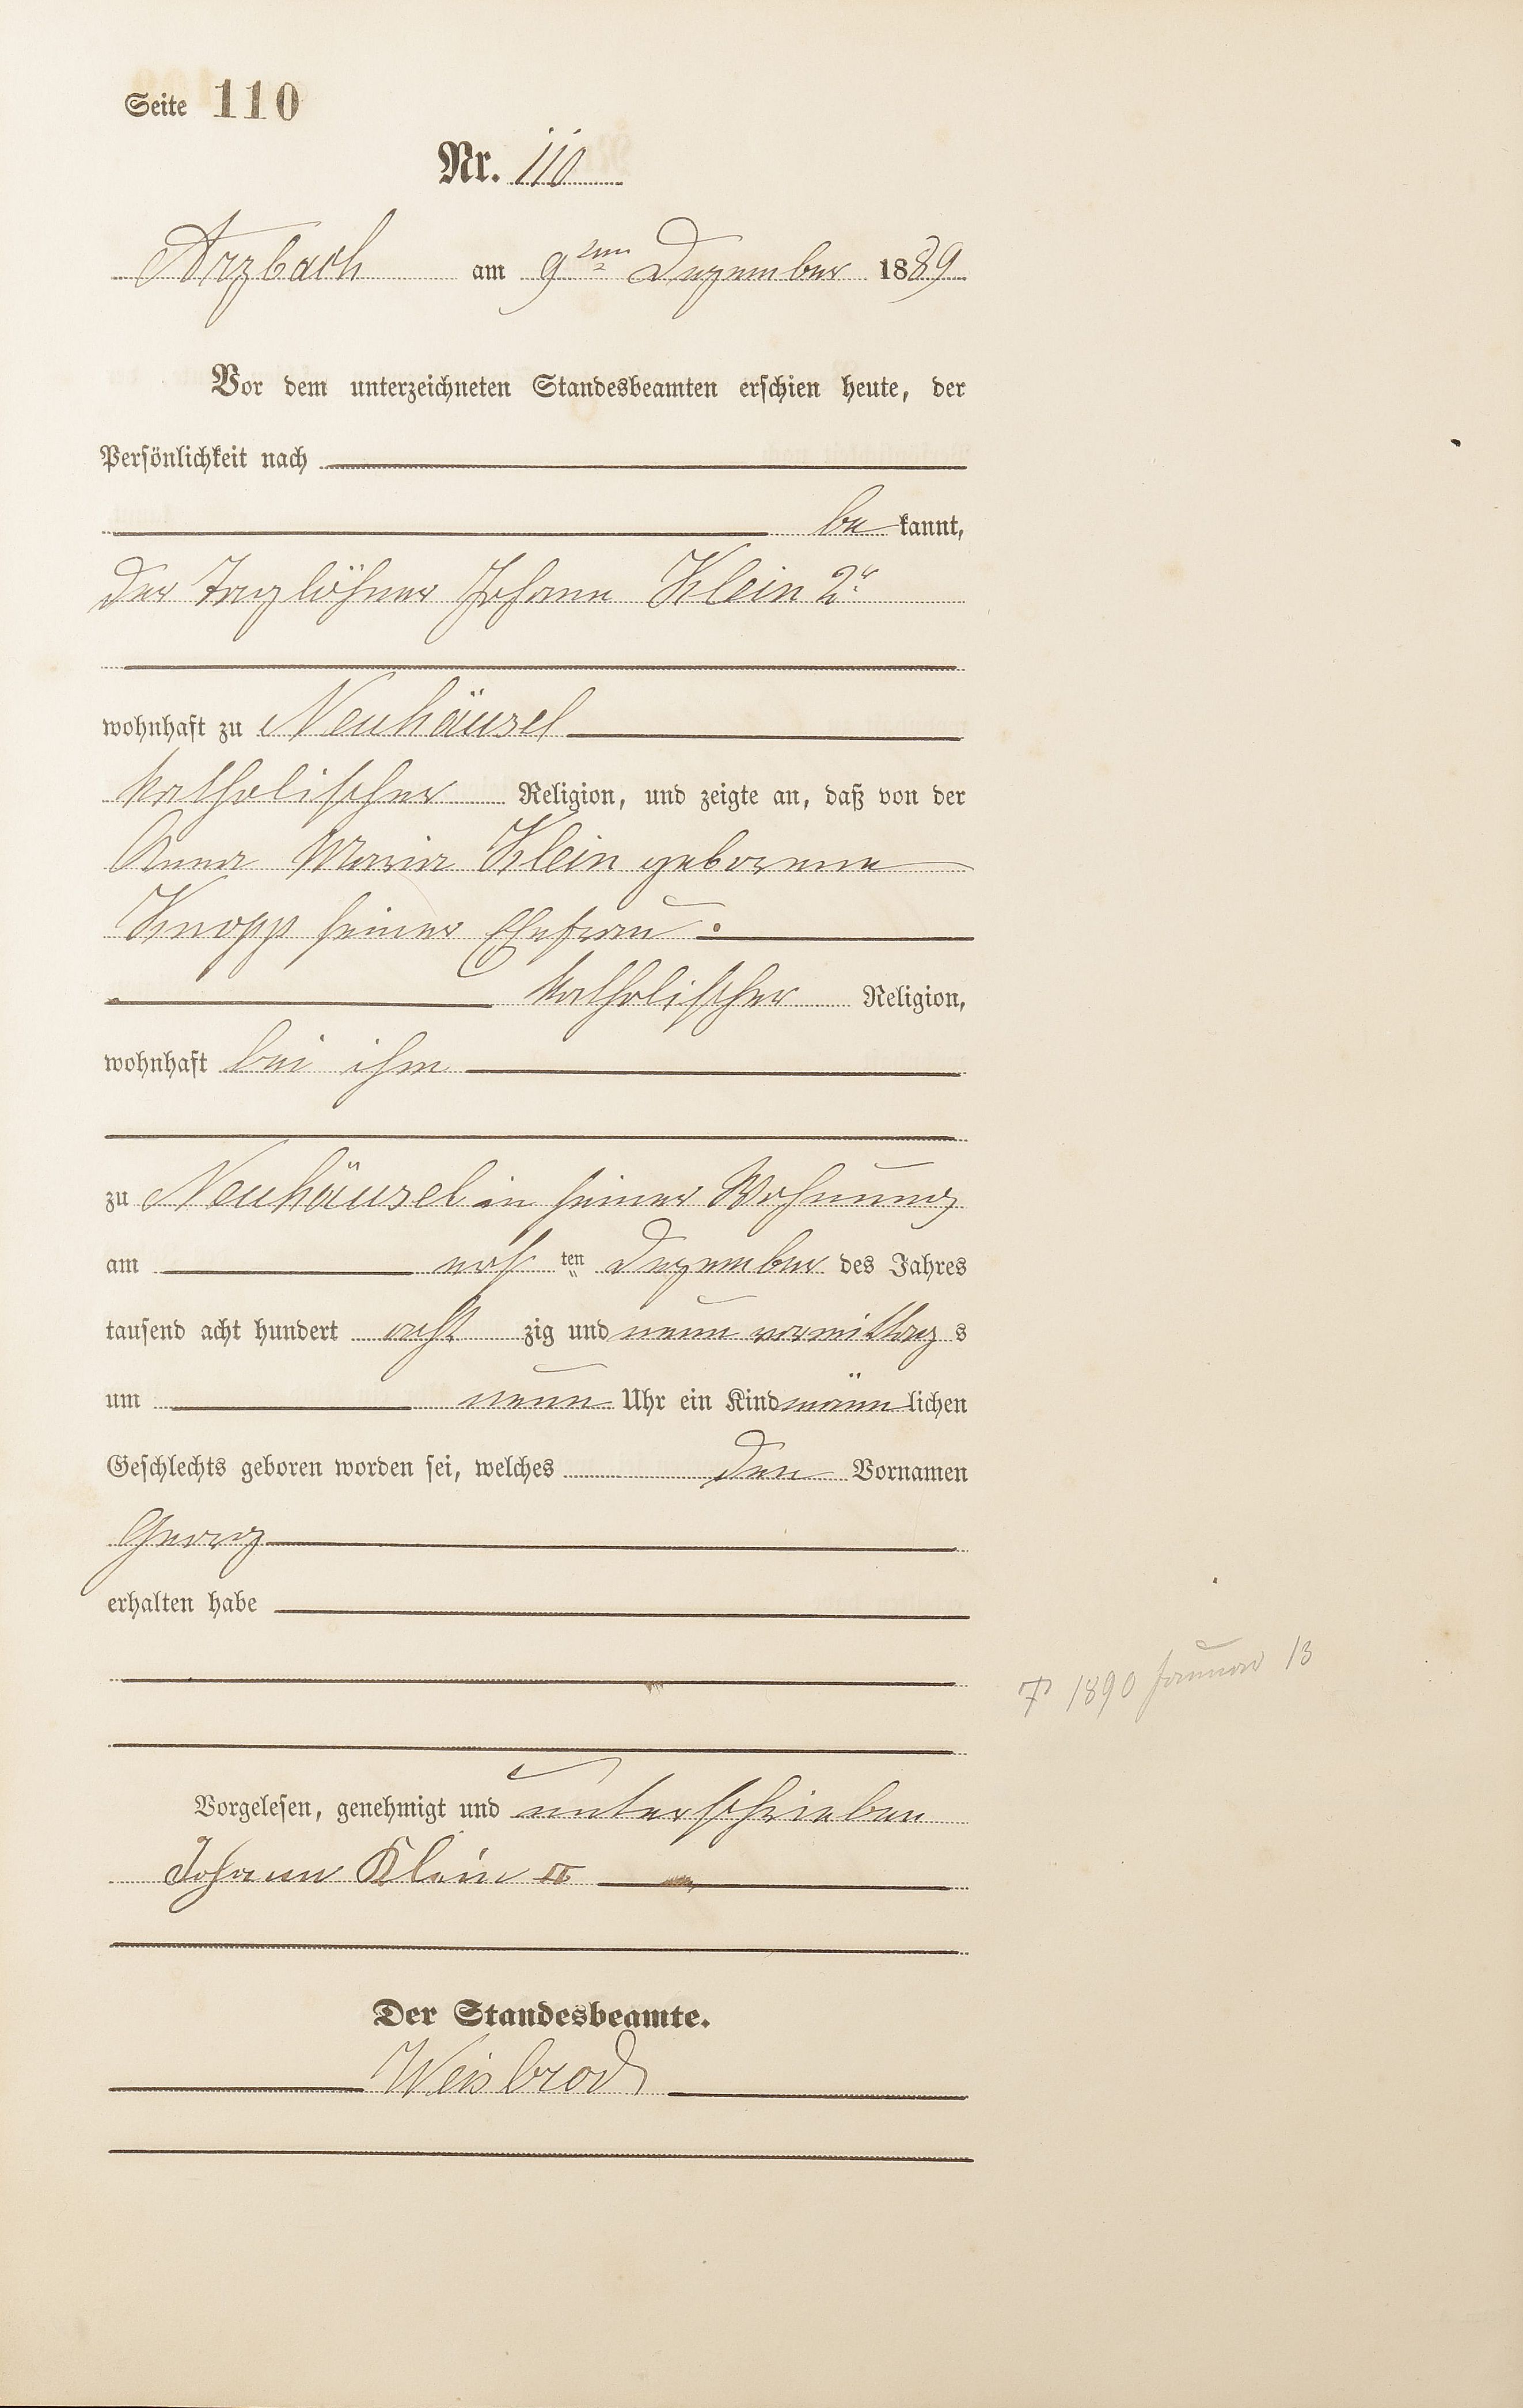 Seite 110
Nr. 110
Arzbach am 9ten Dezember 1889
Vor dem unterzeichneten Standesbeamten erschien heute, der
Persönlichkeit nach
be kannt,
der Taglöhner Johann Klein 2r
wohnhaft zu Neuhäusel
katholischer Religion, und zeigte an, daß von der
Anna Maria Klein geborene
Knopp seiner Ehefrau
katholischer Religion,
wohnhaft bei ihm
zu Neuhäusel in seiner Wohnung
am ten Dezember des Jahres
tausend acht hundert acht zig und neun vormittag s
um neun Uhr ein Kind männ lichen
Geschlechts geboren worden sei, welches den Vornamen
Georg
erhalten habe
1890 Januar 13
Vorgelesen, genehmigt und unterschrieben
Johann Klein II
Der Standesbeamte.
Weisbrod